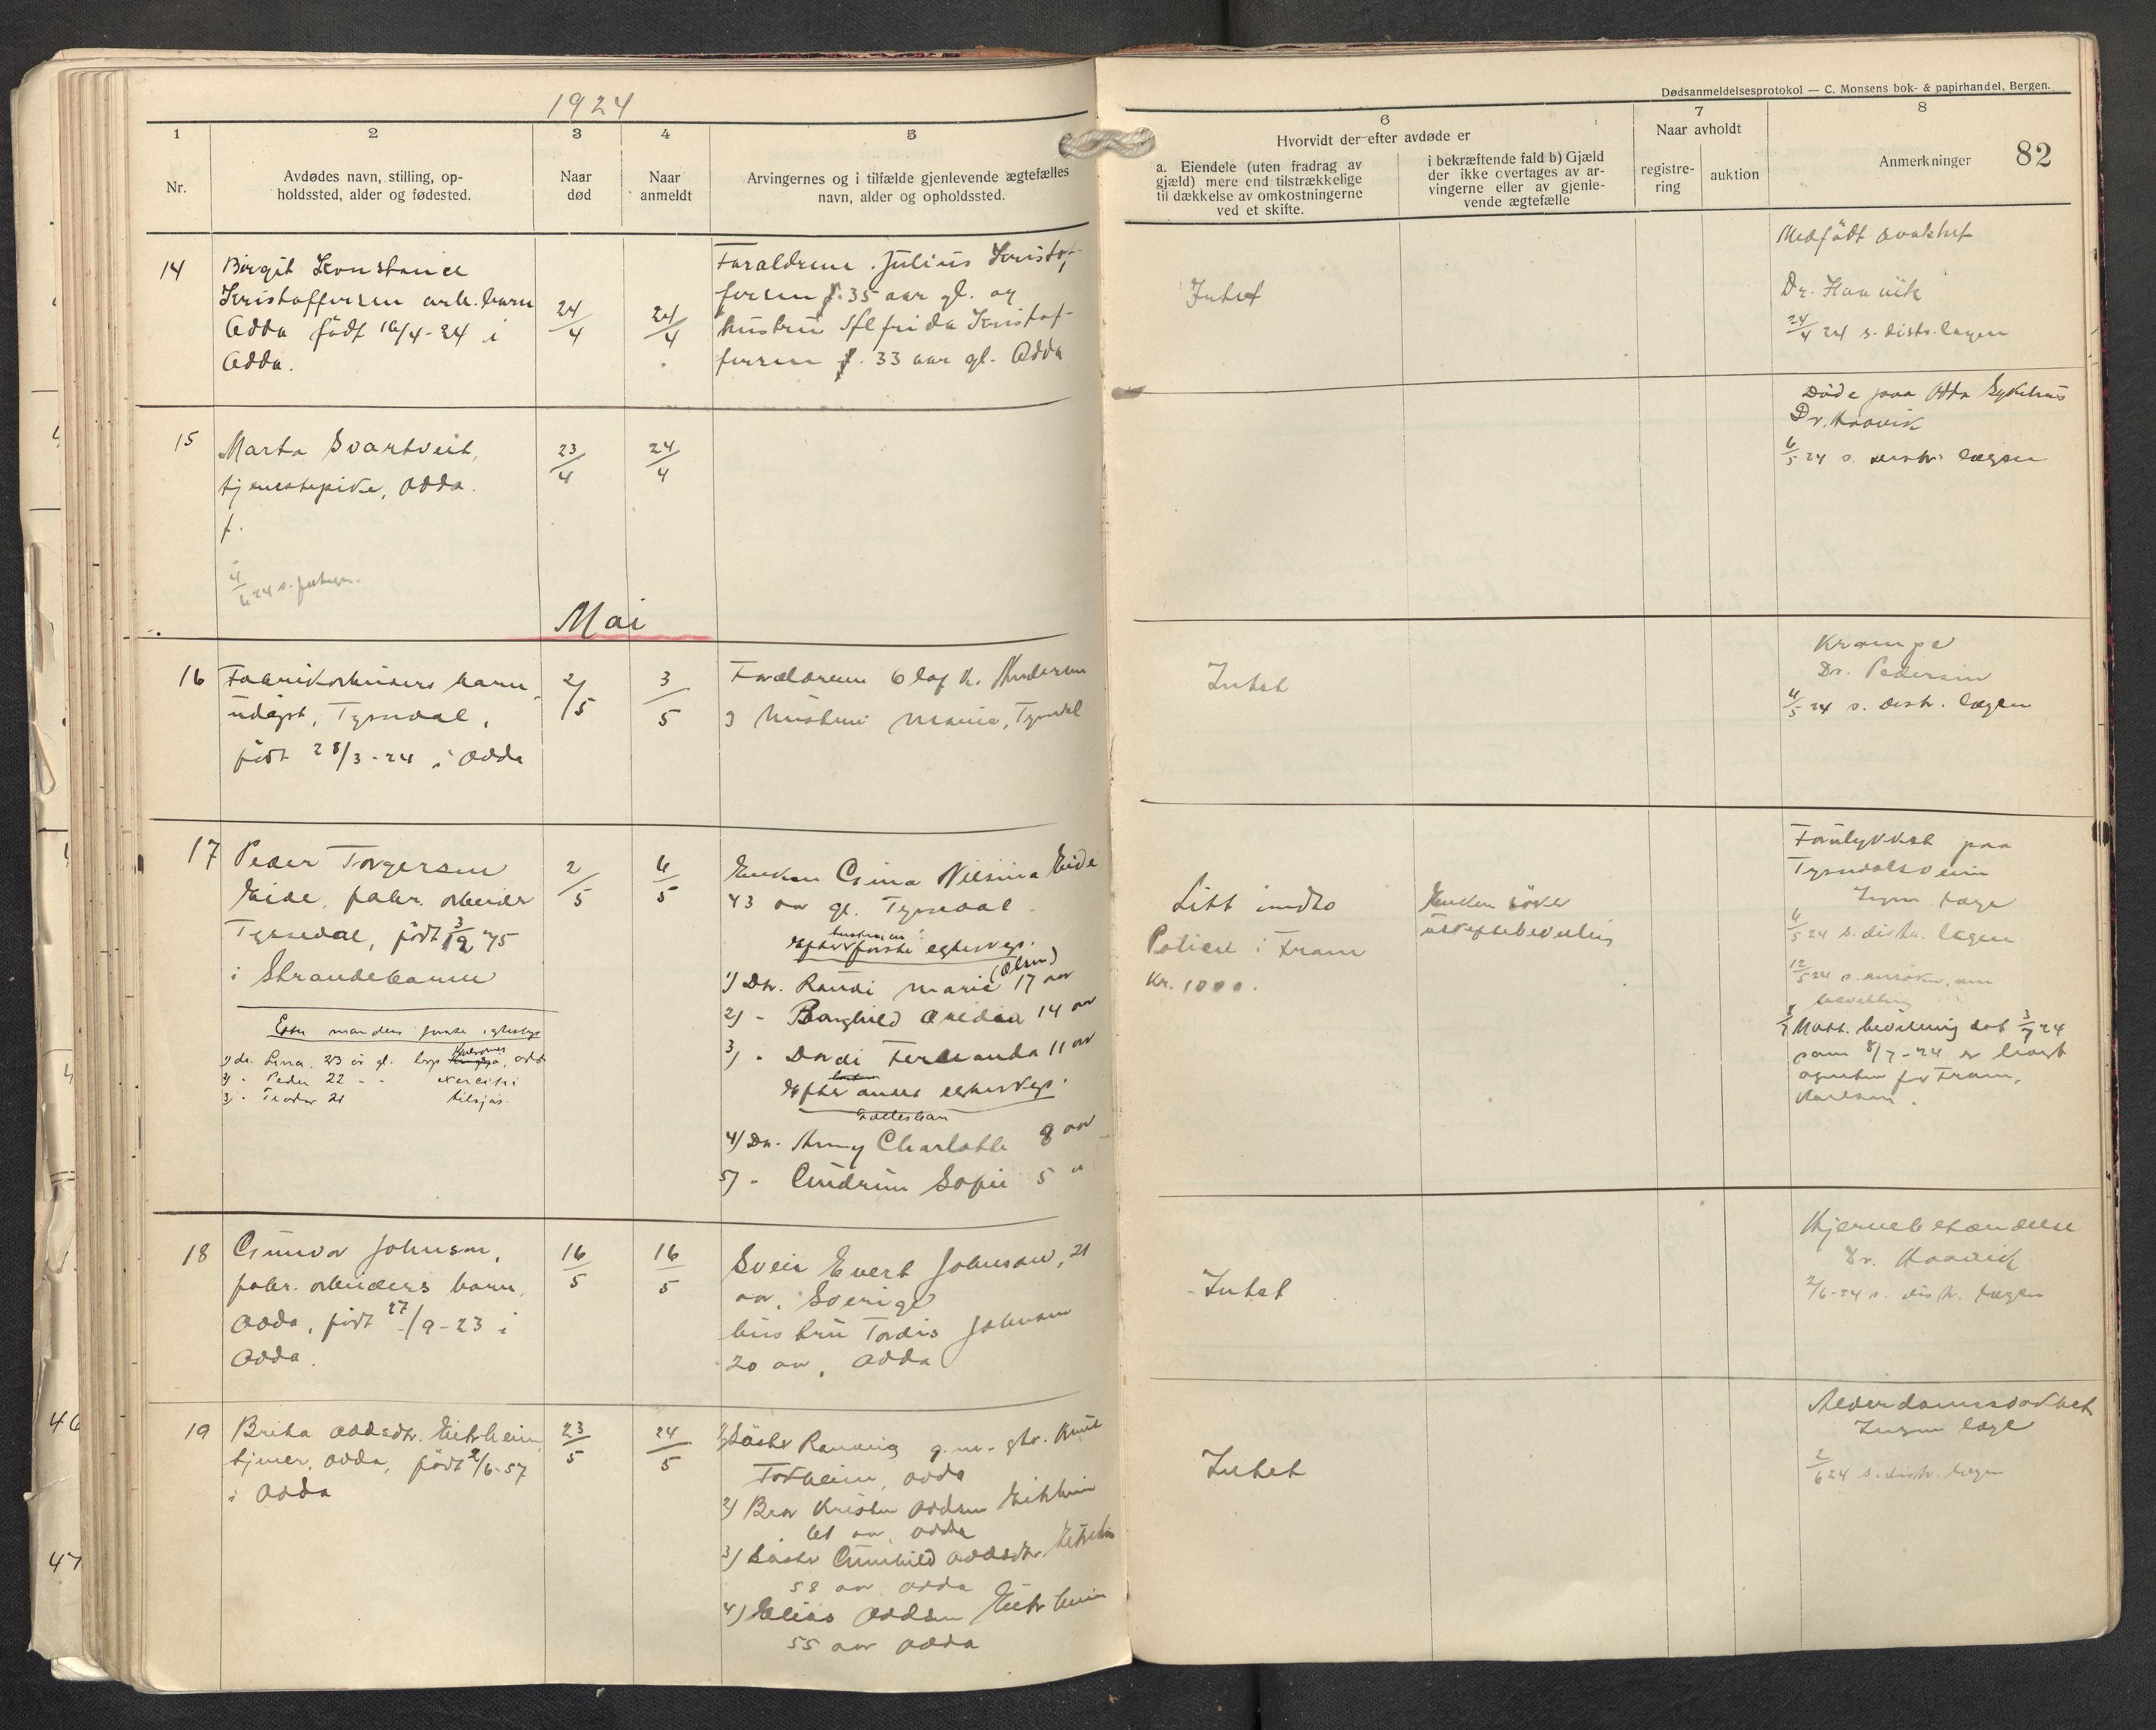 1924
Dødsanmeldelsesprotokol — C. Monsens bok- & papirhandel, Bergen.
82
1
Nr.
2
Avdødes navn, stilling, op-
holdssted, alder og fødested.
3
Naar
død
4
Naar
anmeldt
5
Arvingernes og i tilfælde gjenlevende ægtefælles
navn, alder og opholdssted.
6
Hvorvidt der efter avdøde er
a. Eiendele (uten fradrag av
gjæld) mere end tilstrækkelige
til dækkelse av omkostningerne
ved et skifte.
i bekræftende fald b) Gjæld
der ikke overtages av ar-
vingerne eller av gjenle-
vende ægtefælle
7
Naar avholdt
registre-
ring
auktion
8
Anmerkninger
14
Birgit Konstance
Kristoffersen arb. barn
Odda født 16/4-24 i
Odda.
24/4
24/4
Foraldrene Julius Kristof-
fersen f. 35 aar gl. og
hustru Elfrida Kristof-
fersen f. 33 aar gl. Odda
Intet
Medfødt svakhet
Dr. Haavik
24/4 24 s. distr. lægen
15
Marta Svartveit,
tjenestepike, Odda.
f.
4/6 24 s.
23/4
24/4
Døde paa Odda Sykehus
Dr. Haavik
6/5 24 s. distr. lægen
Mai
16
Fabrikarbeiders barn
udøpt, Tyssedal,
født 28/3-24 i Odda
2/5
3/5
Forældrene Olaf K. Andersen
og hustru Marie, Tyssedal
Intet
Krampe
Dr. Pedersen
4/5 24 s. distr. lægen
17
Peder Torgersen
Eide, fabr. arbeider
Tyssedal, født 3/12 75
i Strandebarm
Efter mandens første egteskap
1) dr. Lina 23 år gl.
2) - Peder 22 - - exercitie
3) - Teodor 21 tilsjøs.
2/5
6/5
Enken Gina Nilsina Eide
43 aar gl. Tyssedal
Efter hustruens første egteskap.
1) Dtr. Randi Marie (Olsen) 17 aar
2) - Borghild 14 aar
3) - Dordi Fernanda 11 aar
Efter andet egteskap.
Fællesbarn
4) Dtr. Anny Charlotte 8 aar
5) - Gudrun Sofie 5 "
Litt indbo
Police i Fram
Kr. 1000.
Enken søker
uskiftebevilling
Forulykket paa
Tyssedalsveien
Ingen læge
6/5 24 s. distr. lægen
12/5 24 s. om
bevilling
Mott. bevilling dat 3/7 24
som 8/7-24 er
agenten for Fram,
18
Gunvor Johnson,
fabr. arbeiders barn,
Odda, født 27/9-23 i
Odda.
16/5
16/5
Sven Evert Johnson, 21
aar, Sverige
hustru Tordis Johnson
20 aar, Odda
Intet
Hjernebetændelse
Dr. Haavik
2/6-24 s. distr. lægen
19
Brita Oddsdtr. Eitrheim
tjener, Odda, født 2/6-57
i Odda
23/5
24/5
1) Søster Rannveig g. m. gbr. Knut
Tokheim, Odda
2) Bror Kristen Oddsen Eitrheim
61 aar, Odda
3) Søster Gunhild Oddsdtr. Eitrheim
58 aar Odda
4) Elias Oddsen Eitrheim
55 aar Odda
Intet
Alderdomssvakhet
Ingen læge
2/6 24 s. distr. lægen
46
47